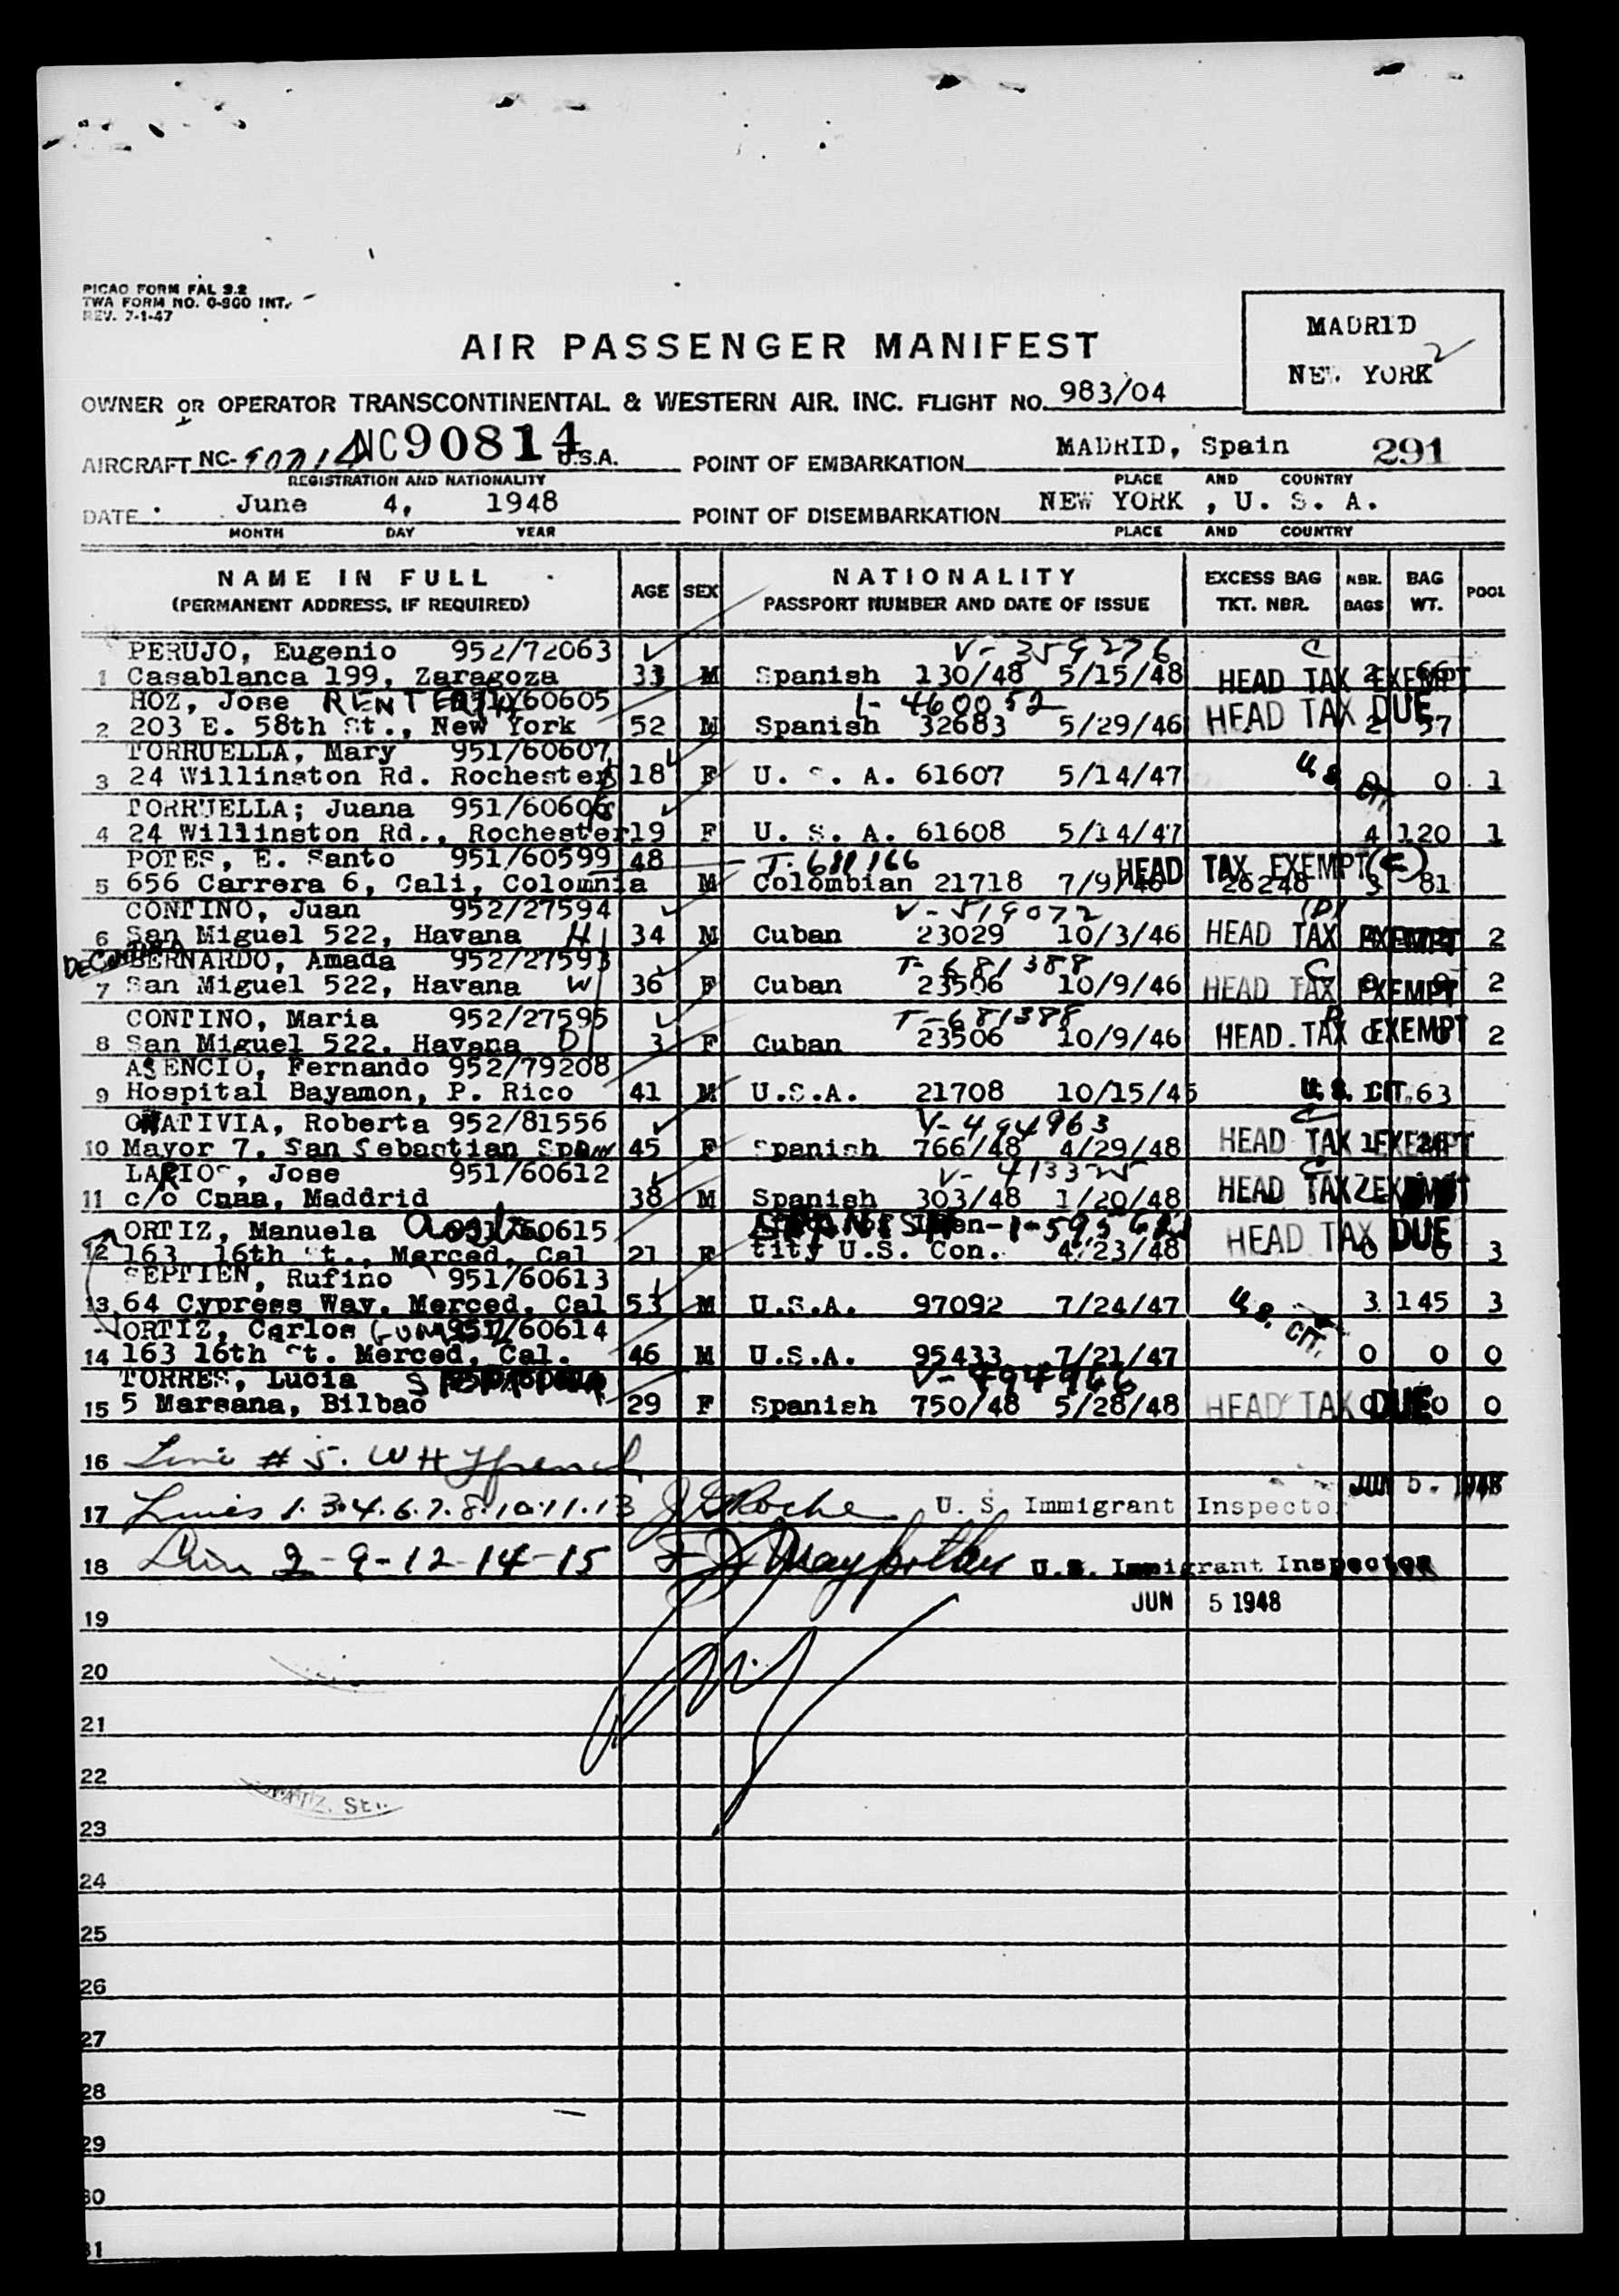 PICAO FORM FAL 3.2
TWA FORM NO. O-900 INT.
REV. 7-1-47
MADRID
NEW YORK 2
AIR PASSENGER MANIFEST
OWNER OR OPERATOR TRANSCONTINENTAL & WESTERN AIR. INC. FLIGHT NO. 983/04
AIRCRAFT NC- NC90814 U.S.A. POINT OF EMBARKATION MADRID, Spain 291
REGISTRATION AND NATIONALITY PLACE AND COUNTRY
DATE June 4, 1948 POINT OF DISEMBARKATION NEW YORK , U. S. A.
MONTH DAY YEAR PLACE AND COUNTRY
NAME IN FULL AGE SEX NATIONALITY EXCESS BAG NBR. BAG POOL
(PERMANENT ADDRESS, IF REQUIRED) PASSPORT NUMBER AND DATE OF ISSUE TKT. NBR. BAGS WT.
PERUJO, Eugenio 952/72063 V-359276 C
1 Casablanca 199, Zaragoza 33 M Spanish 130/48 5/15/48 HEAD TAX EXEMPT 2 66
HOZ, Jose RENTERIA /60605 I-460052
2 203 E. 58th St., New York 52 M Spanish 32683 5/29/46 HEAD TAX DUE 2 57
TORRUELLA, Mary 951/60607
3 24 Willinston Rd. Rochester 18 F U. S. A. 61607 5/14/47 U.S. CIT. 0 0 1
TORRUELLA; Juana 951/60606
4 24 Willinston Rd., Rochester 19 F U. S. A. 61608 5/14/47 4 120 1
POTES, E. Santo 951/60599 48 T-681166 HEAD TAX EXEMPT (C)
5 656 Carrera 6, Cali, Colomnia M Colombian 21718 7/9/46 26248 3 81
CONTINO, Juan 952/27594 V-519072 (D)
6 San Miguel 522, Havana H 34 M Cuban 23029 10/3/46 HEAD TAX EXEMPT 2
BERNARDO, Amada 952/27593 T-681388 C
7 San Miguel 522, Havana W 36 F Cuban 23506 10/9/46 HEAD TAX EXEMPT 0 0 2
CONTINO, Maria 952/27595 T-681388
8 San Miguel 522, Havana D 3 F Cuban 23506 10/9/46 HEAD TAX EXEMPT 0 0 2
ASENCIO, Fernando 952/79208
9 Hospital Bayamon, P. Rico 41 M U.S.A. 21708 10/15/45 U.S. CIT. 1 63
OÑATIVIA, Roberta 952/81556 V-494963 C
10 Mayor 7, San Sebastian Spain 45 F Spanish 766/48 4/29/48 HEAD TAX EXEMPT 1 26
LARIOS, Jose 951/60612 V-
11 c/o Cnaa, Maddrid 38 M Spanish 303/48 1/20/48 HEAD TAX EXEMPT 2
ORTIZ, Manuela 951/60615 SPANISH
12 163 16th St., Merced, Cal 21 F tity U.S. Con. 4/23/48 HEAD TAX DUE 0 0 3
SEPTIEN, Rufino 951/60613
13 64 Cypress Way, Merced, Cal 53 M U.S.A. 97092 7/24/47 U.S. CIT. 3 145 3
ORTIZ, Carlos 951/60614
14 163 16th St. Merced, Cal. 46 M U.S.A. 95433 7/21/47 0 0 0
TORRES, Lucia V-494966
15 5 Marsana, Bilbao 29 F Spanish 750/48 5/28/48 HEAD TAX DUE 0 0
16 Line # 5. W H
JUN 5 - 1948
17 Lines 1.3.4.6.7.8.10.11.13 Roche U. S. Immigrant Inspector
18 Line 2-9-12-14-15 U.S. Immigrant Inspector
JUN 5 1948
19
20
21
22
23
24
25
26
27
28
29
30
31